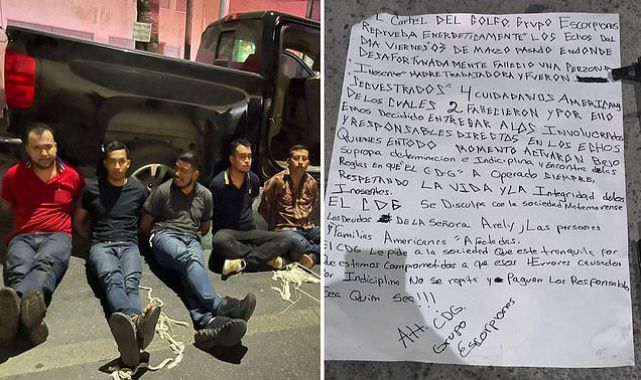 EL CartEL DEL GOLFO Grupo Escorpiones
REprueba ENERGETICAMENTE" LOS Echos DEL
DIA VIERNES" 03 DE MARZO PASADO ENDONDE
DESAFORTUNADAMENTE FALLECIO UNA PERSONA
"INOSENTE" MADRE TRABAJADORA Y FUERON
SECUESTRADOS" 4 CUIDADANOS AMERICANOS
DE LOS CUALES 2 FALLECIERON Y POR ELLO
EMOS DECIDIDO ENTREGAR A LOS INVOLUCRADOS
Y RESPONSABLES DIRECTOS EN LOS ECHOS
QUIENES EN TODO MOMENTO ACTUARON BAJO
SU propia determinacion E Indiciplina Y Encontra de las
Reglas EN QUE "EL CDG" A Operado SIEMPRE,
RESPETANDO LA VIDA Y LA Integridad de los
Inosentes.
EL CDG Se Disculpa con la sociedad Matamorense
Los Deudos DE LA Señora Arely y Las personas
y Familias Americanas" Afectadas.
El CDG Le pide a la sociedad Que este tranquila por
que estamos Comprometidos a que esos "Errores causados
Por Indiciplina No se repita y Paguen Los Responsables
Sea Quim Sea!!!
Att. CDG
Grupo
Escorpiones